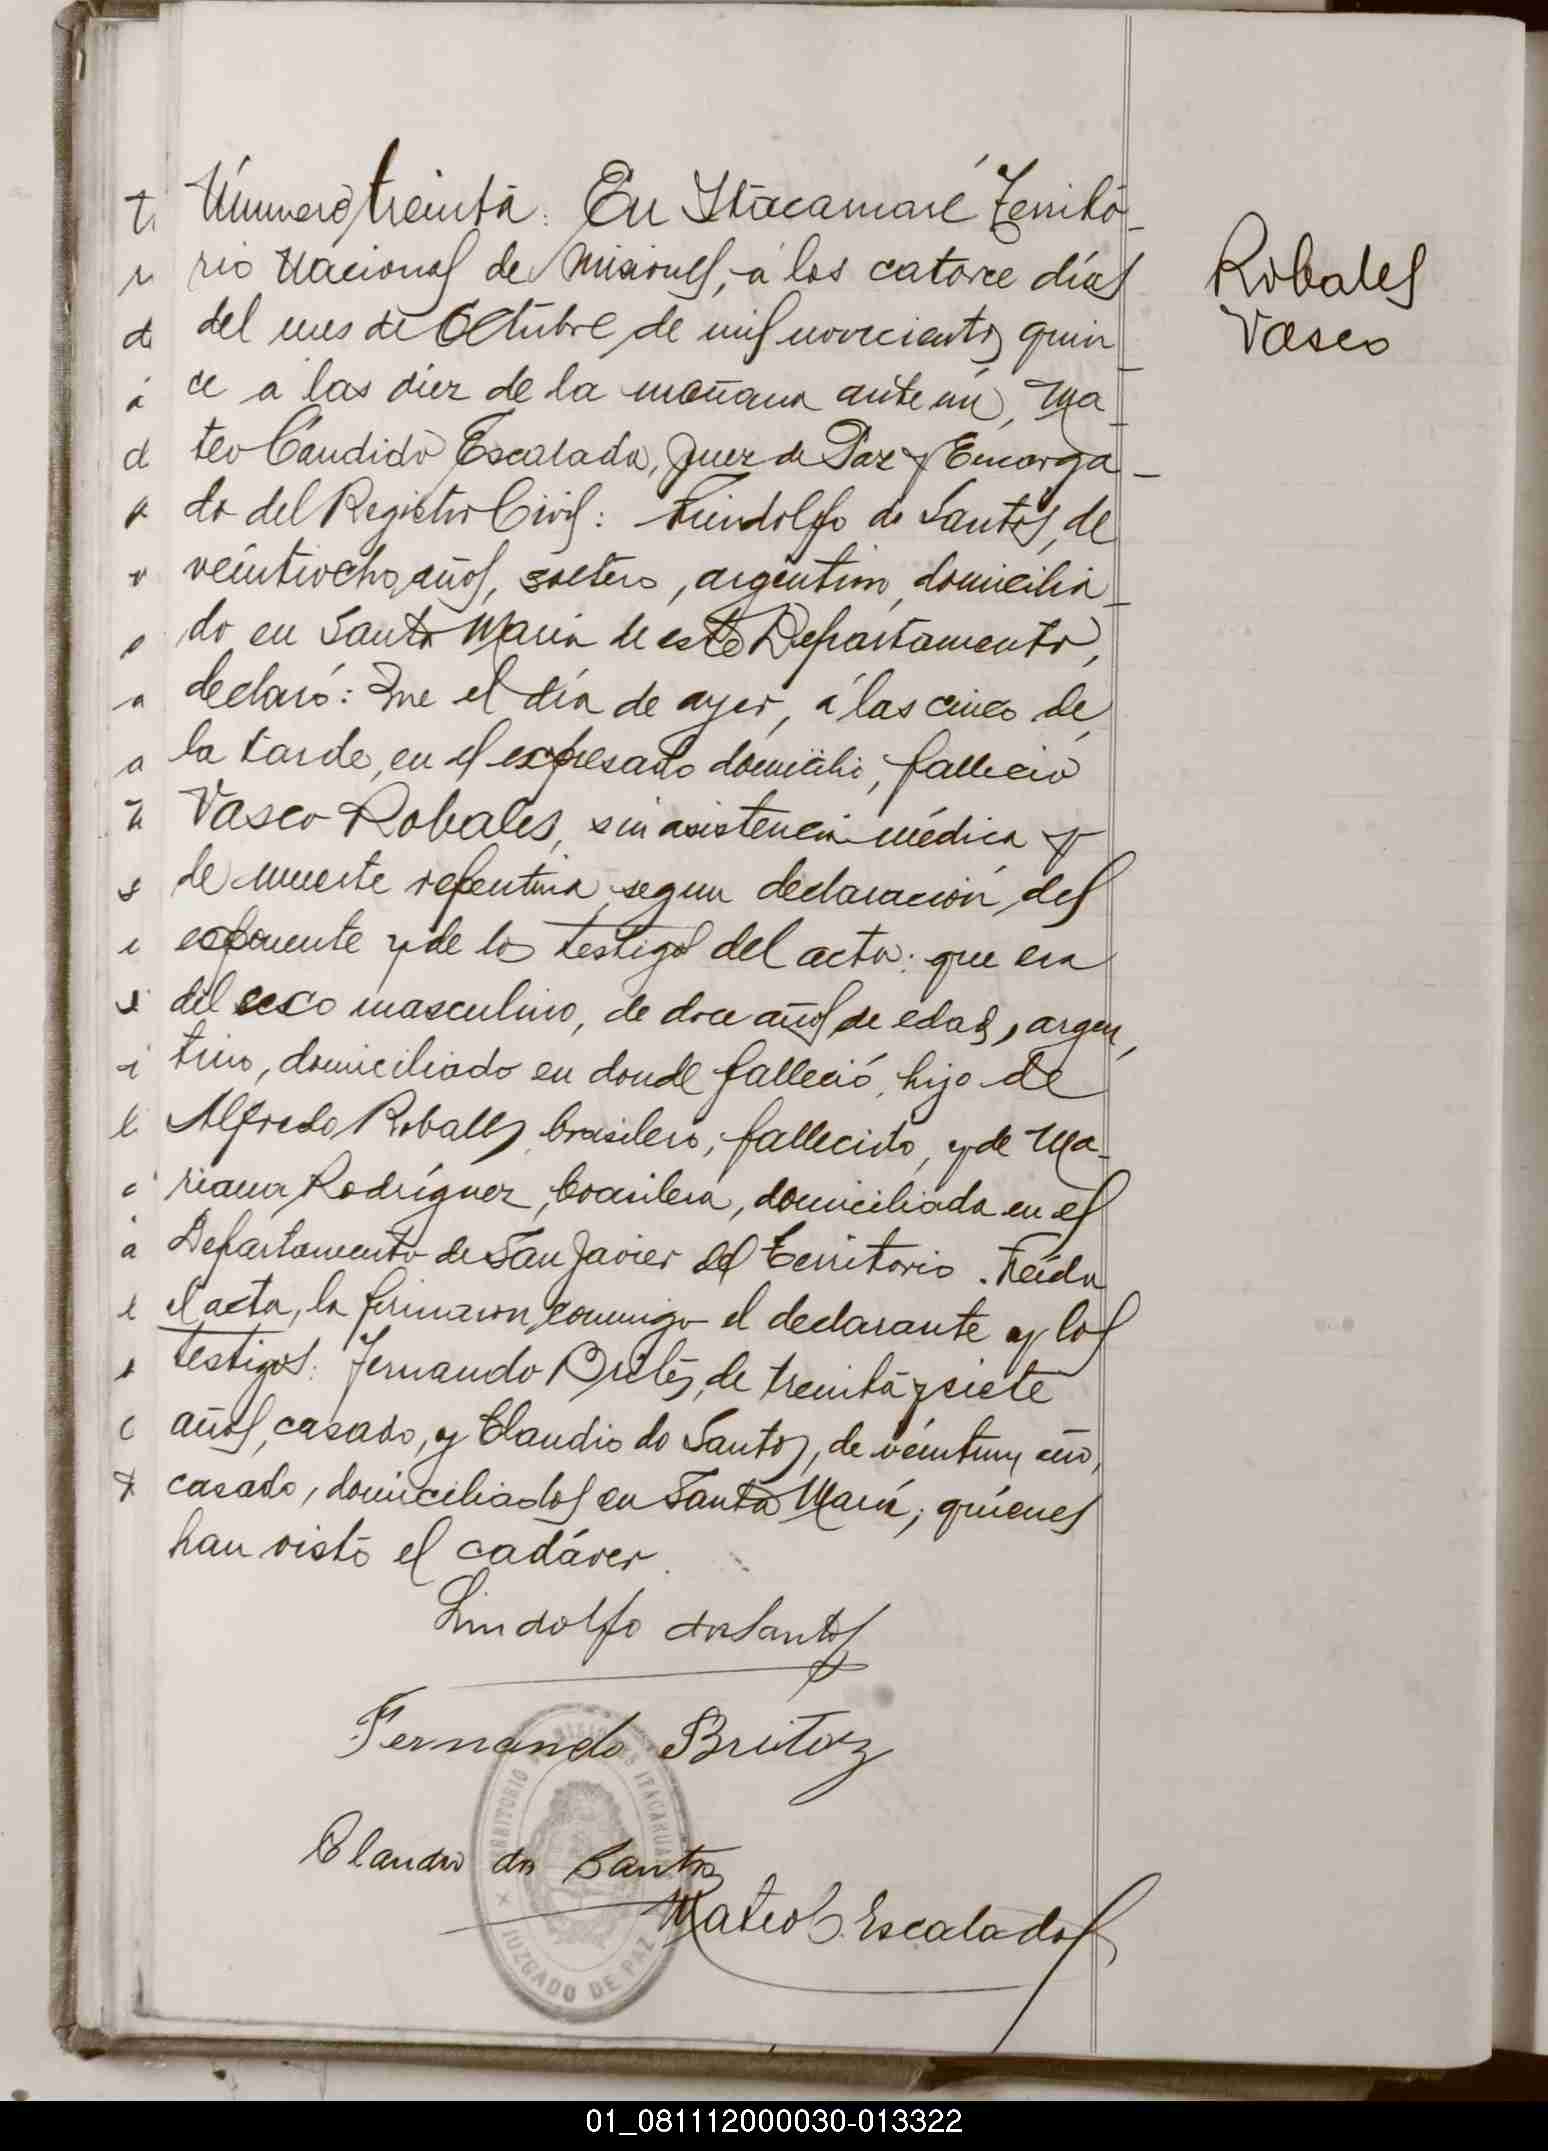 Número treinta. En Itacaruaré Territo-
rio Nacional de Misiones, á los catorce días
del mes de Octubre de mil novecientos quin-
ce á las diez de la mañana ante mí, Ma-
teo Candido Escalada, Juez de Paz y Encarga-
do del Registro Civil: Lindolfo do Santos, de
veintiocho años, soltero, argentino, domicilia-
do en Santa María de este Departamento,
declaró: Que el día de ayer, á las cinco de
la tarde, en el expresado domicilio, falleció
Vasco Robales, sin asistencia médica y
de muerte repentina, segun declaración del
exponente y de los testigos del acta: que era
del sexo masculino, de doce años de edad, argen-
tino, domiciliado en donde falleció, hijo de
Alfredo Robales, brasilero, fallecido, y de Ma-
riana Rodríguez, brasilera, domiciliada en el
Departamento de San Javier del Territorio. Leída
el acta, la firmaron conmigo el declarante y los
testigos: Fernando Brites, de treinta y siete
años, casado, y Claudio do Santos, de veintiun año,
casado, domiciliados en Santa María; quiénes
han visto el cadáver.
Robales
Vasco
Lindolfo dos Santos
Fernando Britoz
Claudio dos Santos
Mateo C. Escalada
TERRITORIO MISIONES ITACARUARE
JUZGADO DE PAZ
01_081112000030-013322